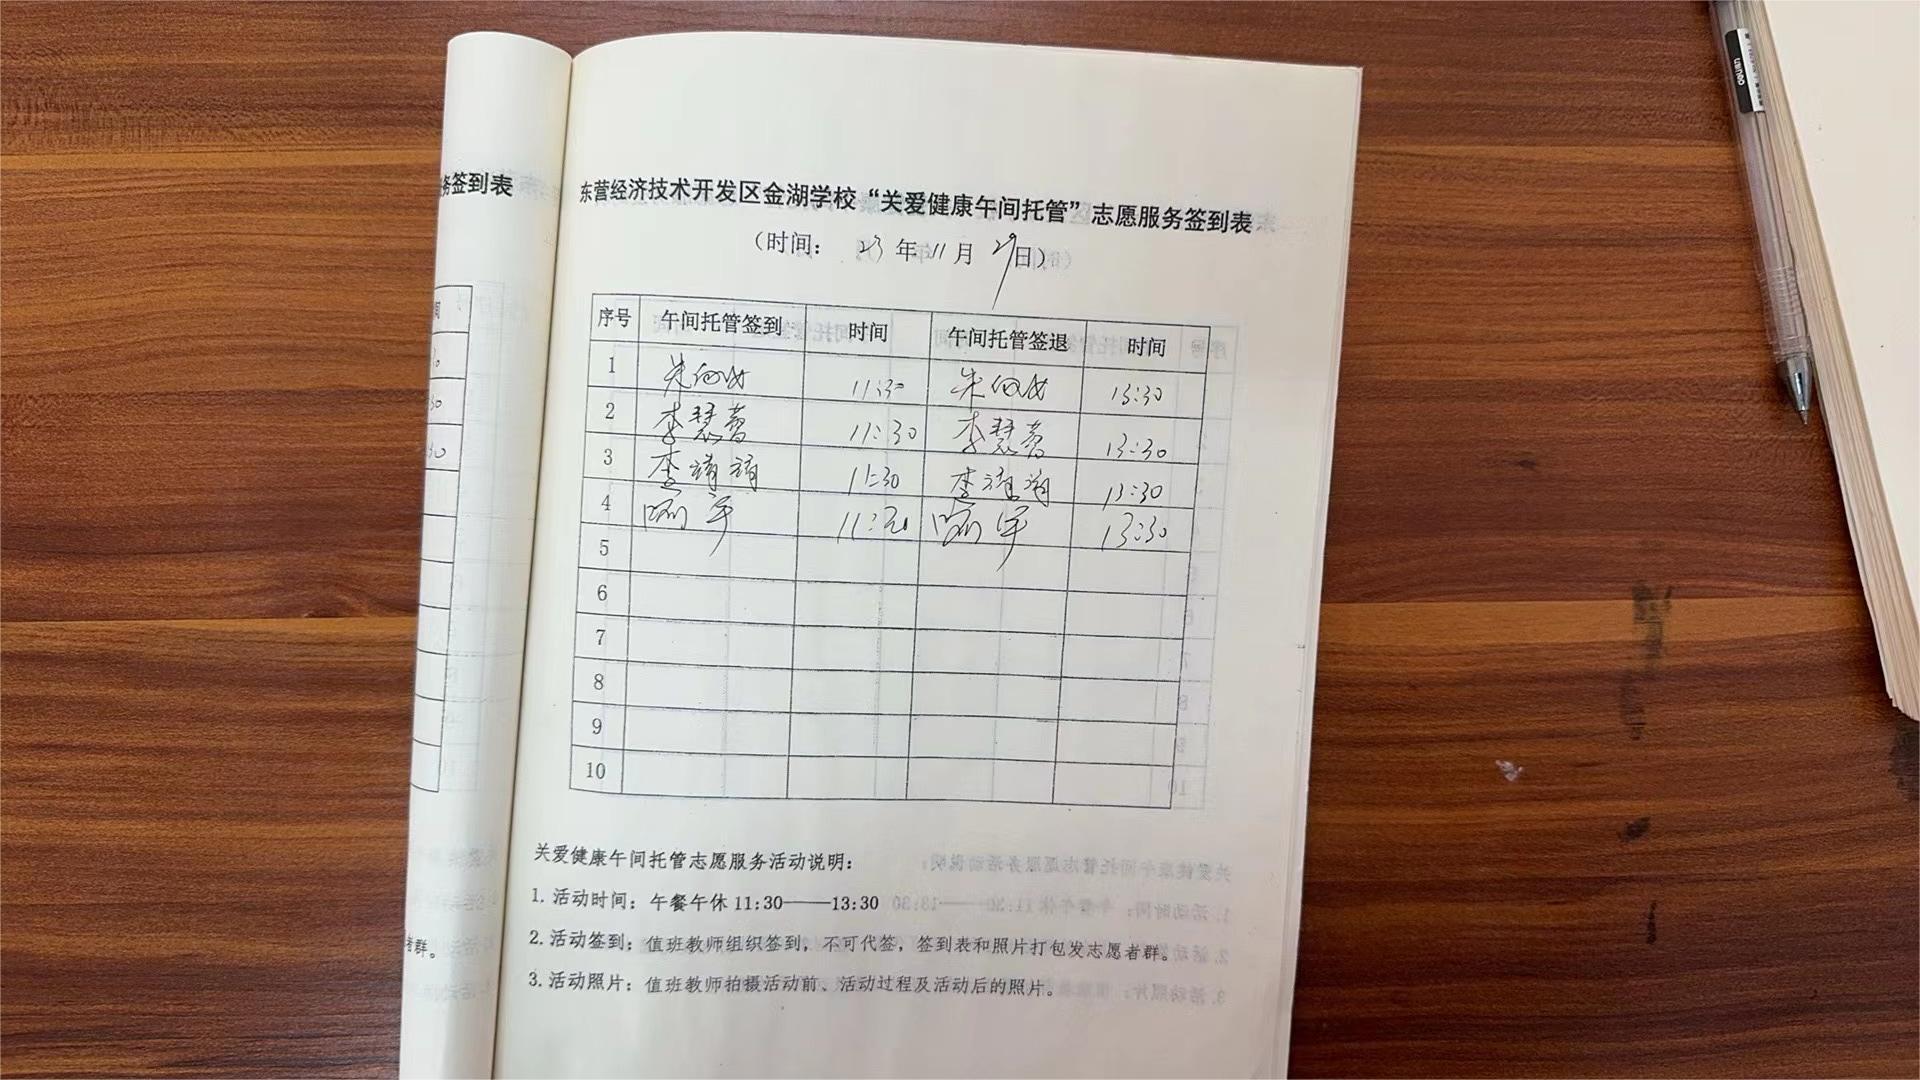 务签到表
东营经济技术开发区金湖学校“关爱健康午间托管”志愿服务签到表
（时间： 23 年 11 月 29 日）
间
序号 午间托管签到 时间 午间托管签退 时间
1 朱 11:30 朱 13:30
30
2 李慧蓉 11:30 李慧蓉 13:30
3 李靖靖 11:30 李靖靖 13:30
4 11:30 13:30
5
6
7
8
9
10
关爱健康午间托管志愿服务活动说明：
1. 活动时间：午餐午休 11:30——13:30
2. 活动签到：值班教师组织签到，不可代签，签到表和照片打包发志愿者群。
者群。
3. 活动照片：值班教师拍摄活动前、活动过程及活动后的照片。